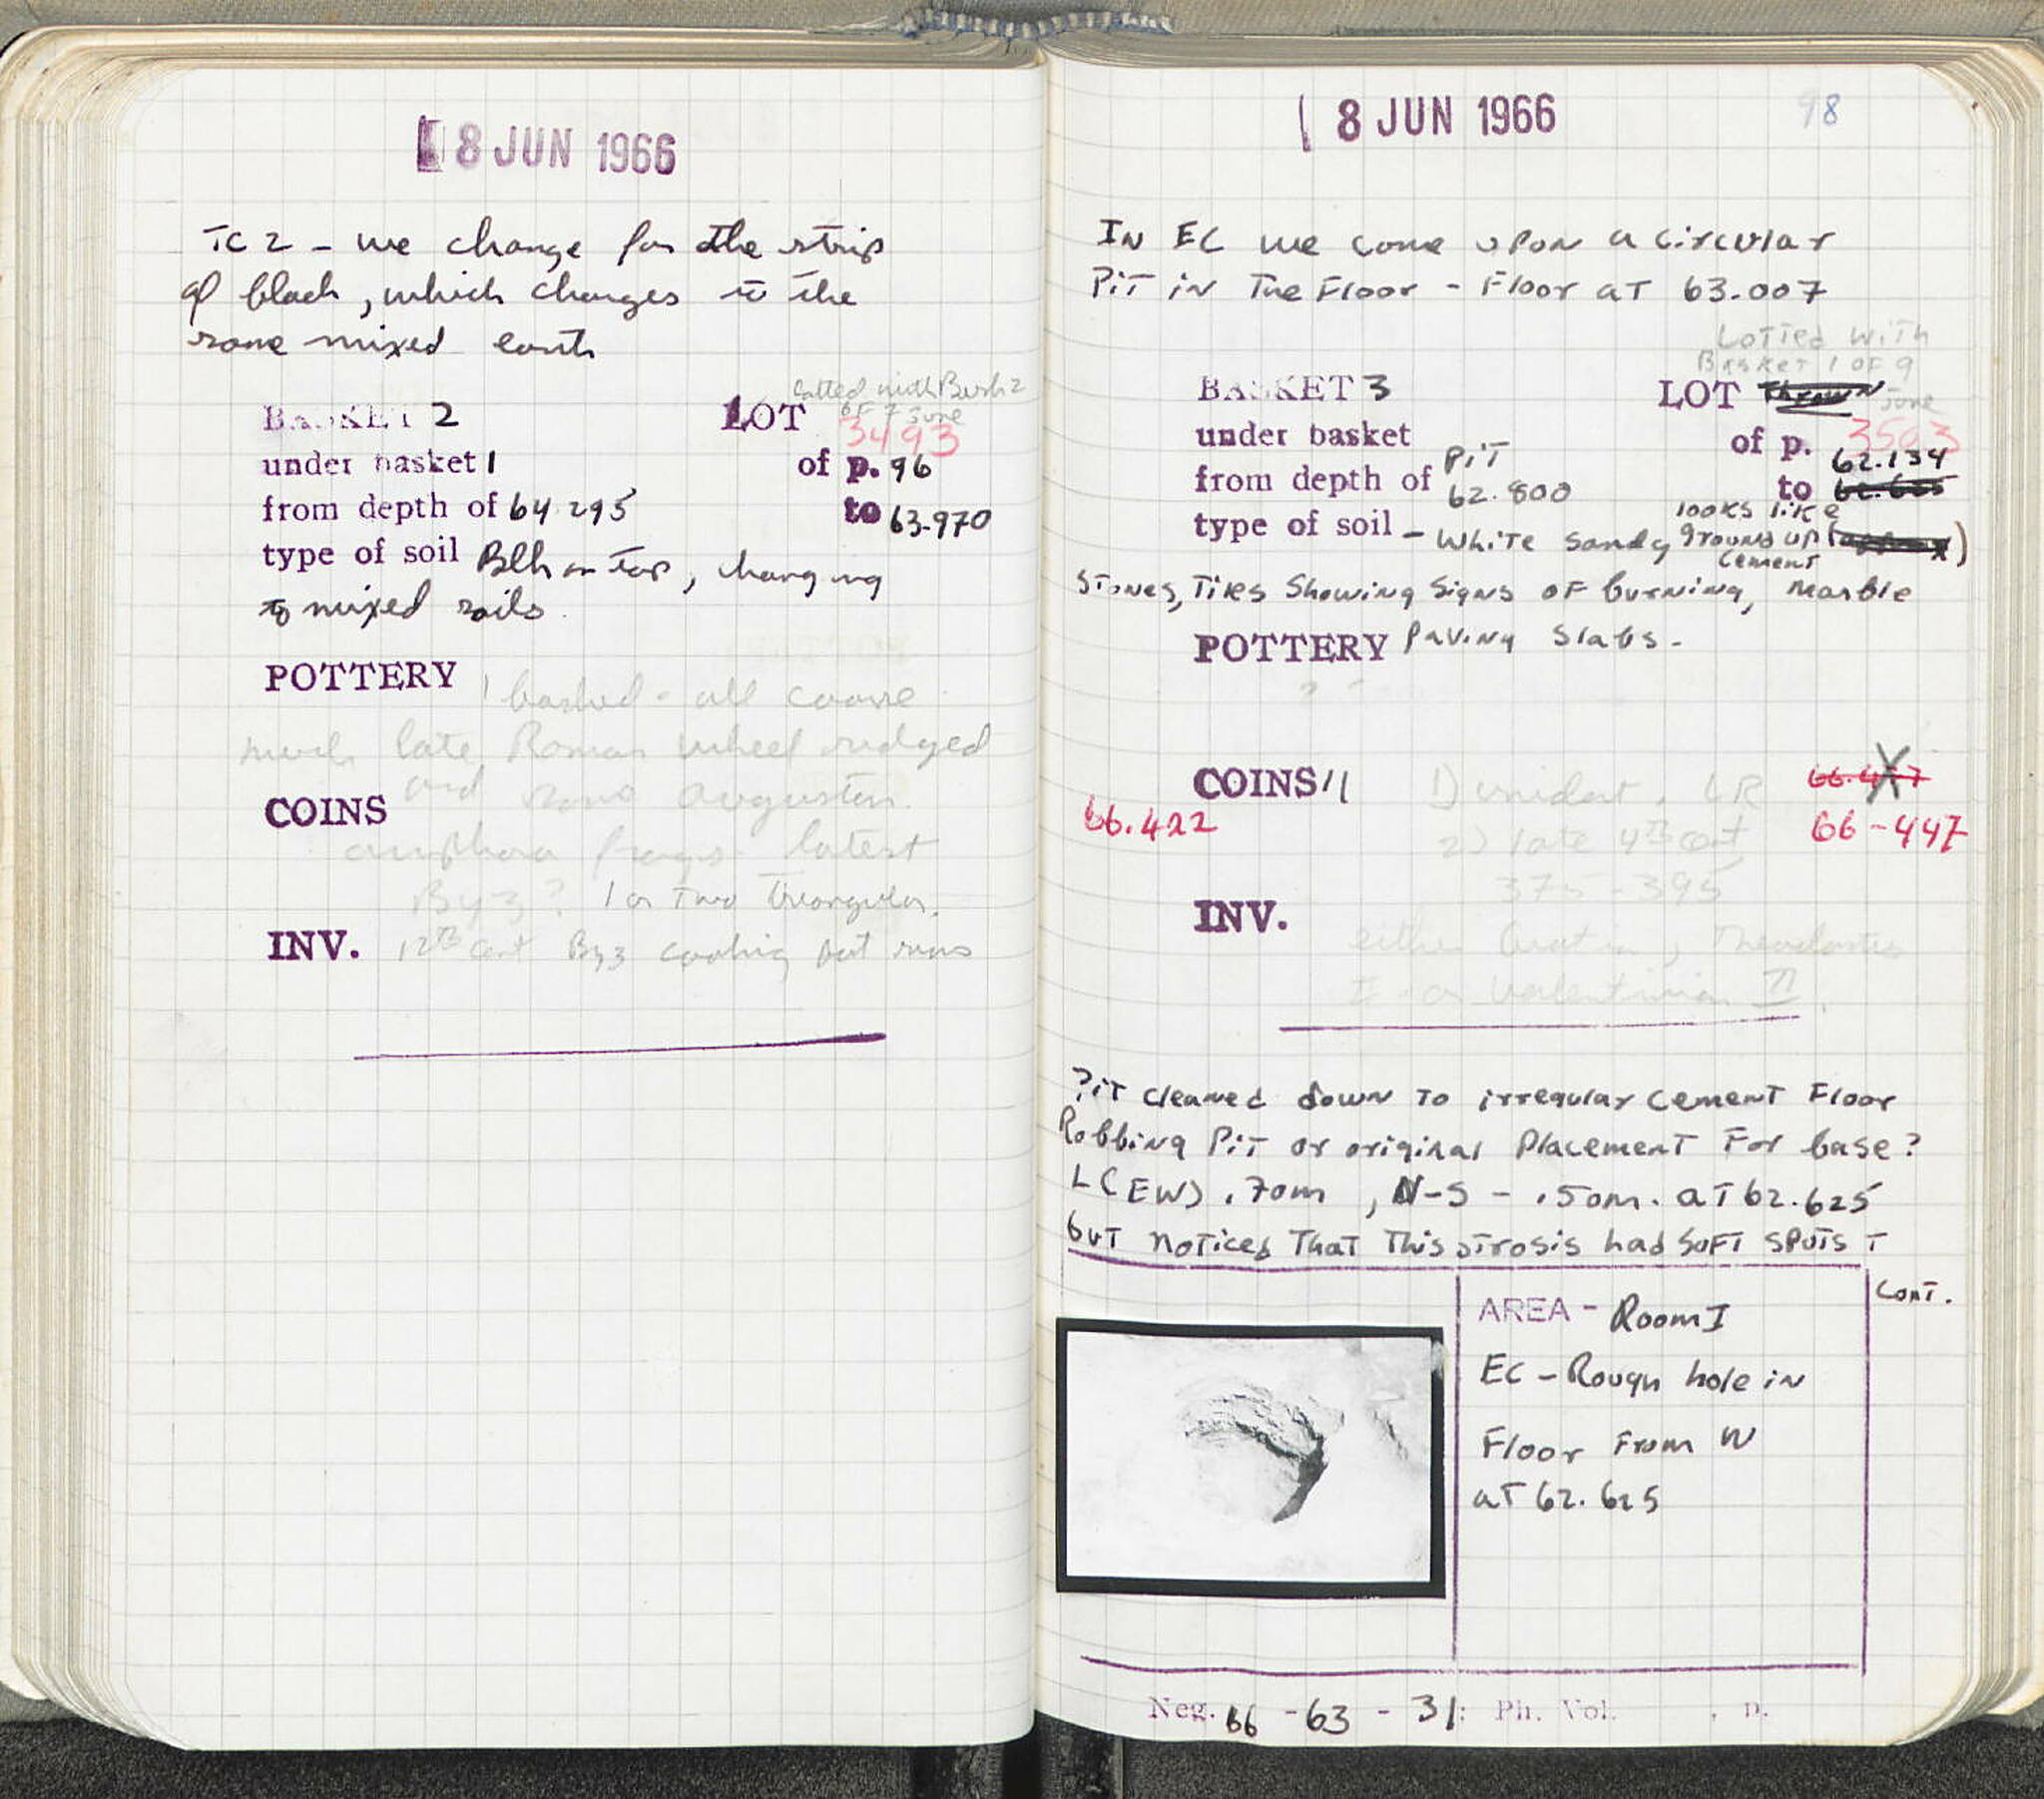 8 JUN 1966
TC 2 - we change for the strip
of black, which changes to the
same mixed earth
Lotted with Bask 2
of 7 June
BASKET 2 LOT 3493
under basket 1 of p. 96
from depth of 64.295 to 63.970
type of soil Blk on top, changing
to mixed soils.
POTTERY 1 basked - all coarse
much late Roman wheel ridged
and some Augustan
COINS
amphora frags. latest
Byz? 1 or two triangular
INV. 12th cent Byz cooking pot rims
8 JUN 1966
98
IN EC we come upon a circular
Pit in The Floor - Floor at 63.007
Lotted with
Basket 1 of 9
June
BASKET 3 LOT
under basket of p. 3503
from depth of Pit 62.800 to 62.134
type of soil - White sandy looks like ground up cement
stones, Tiles Showing Signs of burning, Marble
POTTERY Paving Slabs -
COINS 11 1) unident. LR 66.477
66.422 2) late 4th cent 66-447
375-395
INV.
either Gratian, Theodosius
I or Valentinian II.
Pit cleaned down to irregular cement Floor
Robbing Pit or original Placement For base?
L(EW) .70m, N-S - .50m. at 62.625
but noticed That This strosis had soft spots T
cont.
AREA - Room I
EC - Rough hole in
Floor From W
at 62.625
Neg. 66 - 63 - 31: Ph. Vol. , p.